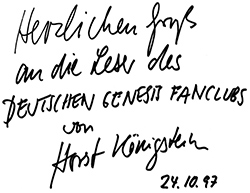 Herzlichen Gruß
an die Leser des
DEUTSCHEN GENESIS FANCLUBS
von
Horst Königstein
24.10.97